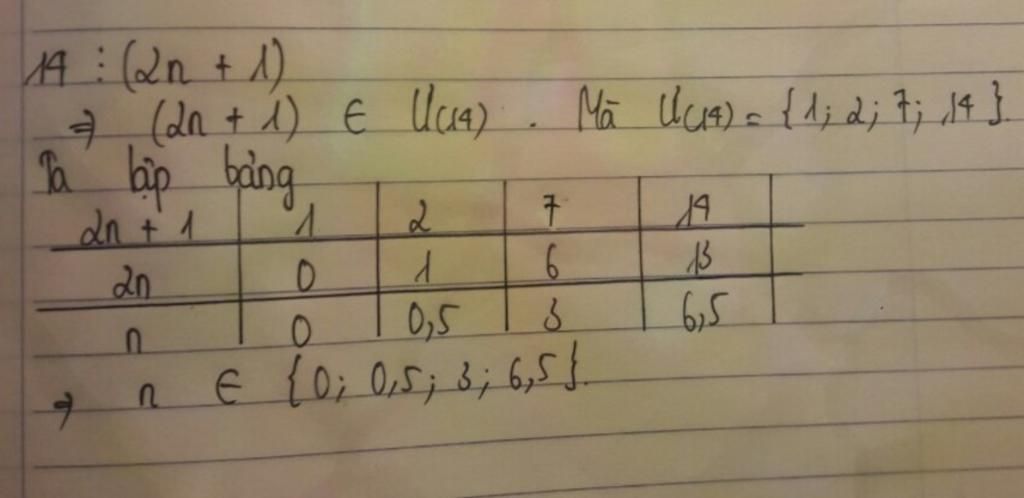 14 ⋮ (2n + 1)
⇒ (2n + 1) ∈ Ư(14) . Mà Ư(14) = {1; 2; 7; 14}.
Ta lập bảng
2n + 1 1 2 7 14
2n 0 1 6 13
n 0 0,5 3 6,5
⇒ n ∈ {0; 0,5; 3; 6,5}.